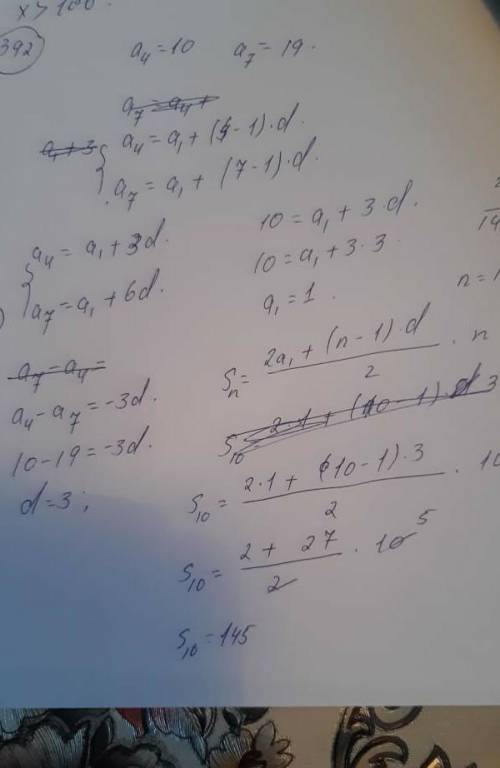 x > 100.
392
a₄ = 10 a₇ = 19.
a₇ = a₄ +
a₁ + 3
a₄ = a₁ + (4-1)·d.
a₇ = a₁ + (7-1)·d.
a₄ = a₁ + 3d.
a₇ = a₁ + 6d.
a₇ - a₄ =
a₄ - a₇ = -3d.
10 - 19 = -3d.
d = 3;
10 = a₁ + 3·d.
10 = a₁ + 3·3
a₁ = 1.
Sₙ = (2a₁ + (n-1)·d)/2 · n
S₁₀ = 2·1 + (10-1)·d 3
S₁₀ = (2·1 + (10-1)·3)/2 · 10
S₁₀ = (2 + 27)/2 · 10 5
S₁₀ = 145
n =